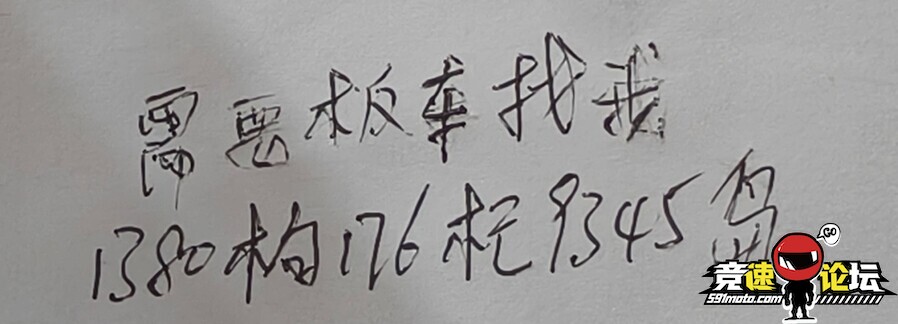 需要板车找我
1380柏176栏9345岛
GO
竞速论坛
591moto.com